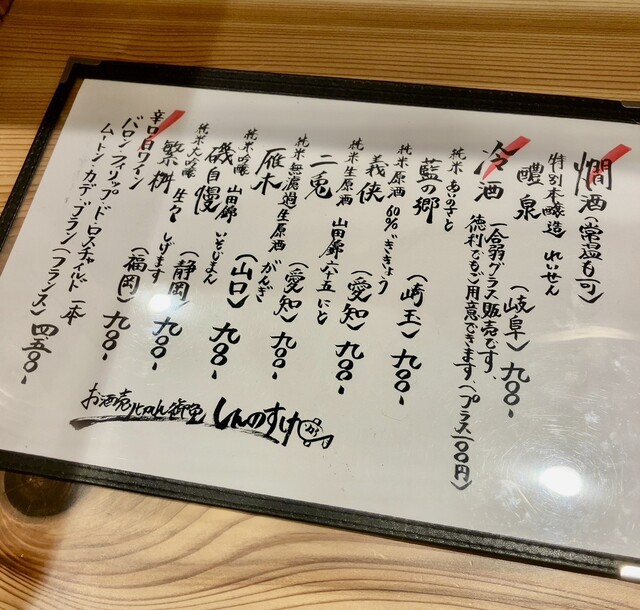 燗酒(常温も可)
特別本醸造 れいせん
醴泉 (岐阜) 九〇〇~
冷酒 一合弱グラス販売です、
徳利でもご用意できます、(プラス一〇〇円)
純米 あいのさと
藍の郷 (埼玉) 九〇〇~
純米原酒 60% ぎきょう
義侠 (愛知) 九〇〇~
純米生原酒 山田錦六十五 にと
二兎 (愛知) 九〇〇~
純米無濾過生原酒 がんぎ
雁木 (山口) 九〇〇~
純米吟醸 山田錦 いそじまん
磯自慢 (静岡) 九〇〇~
純米大吟醸 生々 しげます
繁桝 (福岡) 九〇〇~
辛口白ワイン
バロン・フィリップ・ド・ロスチャイルド 一本
ムートン・カデ・ブラン (フランス) 四、五〇〇~
しんのすけ